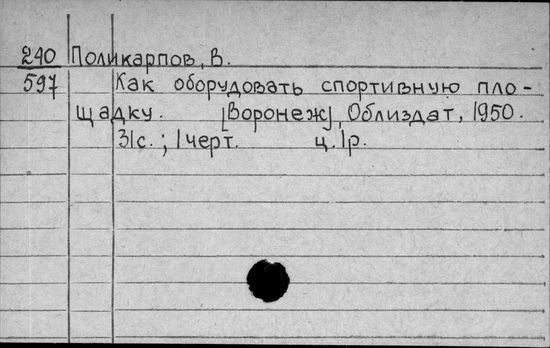 240 Поликарпов, В.
597 Как оборудовать спортивную пло-
щадку. [Воронеж], Облиздат, 1950.
31с.; 1черт. ц.1р.